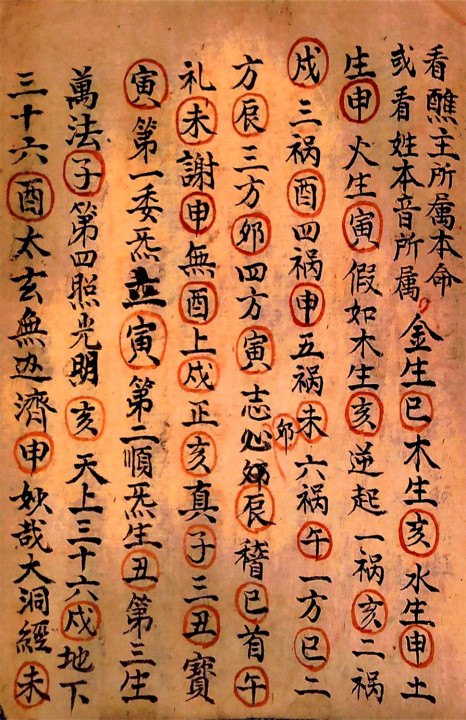 看醮主所属本命
或看姓本音所属
金生巳木生亥水生申土
生申火生寅假如木生亥逆起一祸亥二祸
戍三祸酉四祸申五祸未六祸午一方巳二
方辰三方夘四方寅志心夘辰稽巳首午
夘
礼未謝申無酉上戍正亥真子三丑寶
寅第一委炁立寅第二順炁生丑第三生
萬法子第四照光明亥天上三十六戍地下
三十六酉太玄無边濟申妙哉大洞經未